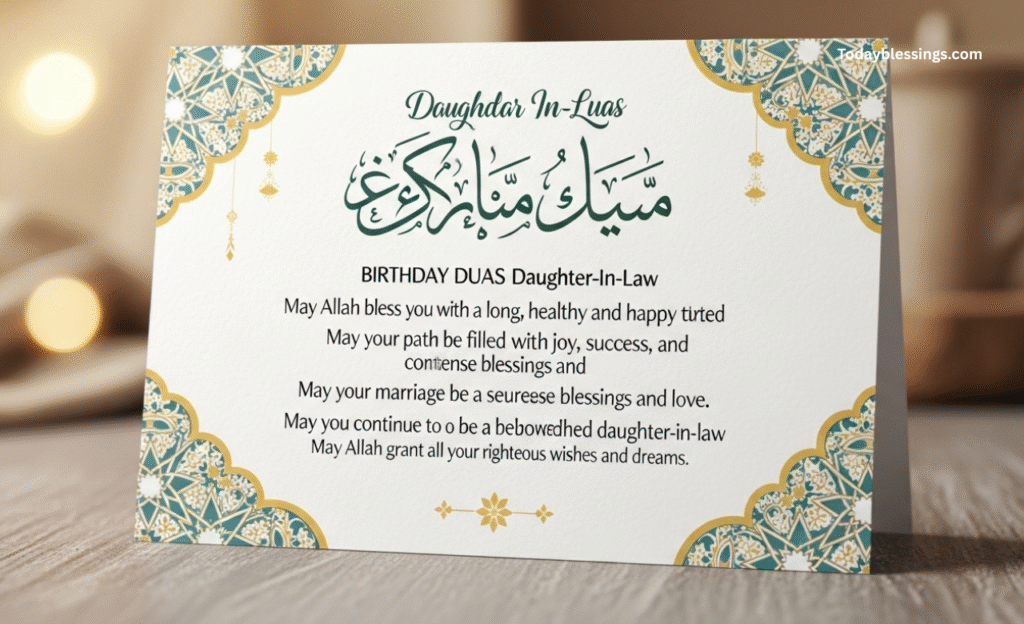 Todayblessings.com
Daughdar In-Luas
BIRTHDAY DUAS Daughter-In-Law
May Allah bless you with a long, healthy and happy
May your path be filled with joy, success, and
blessings and
May your marriage be a seureese blessings and love.
May you continue to o be a daughter-in-law
May Allah grant all your righteous wishes and dreams.